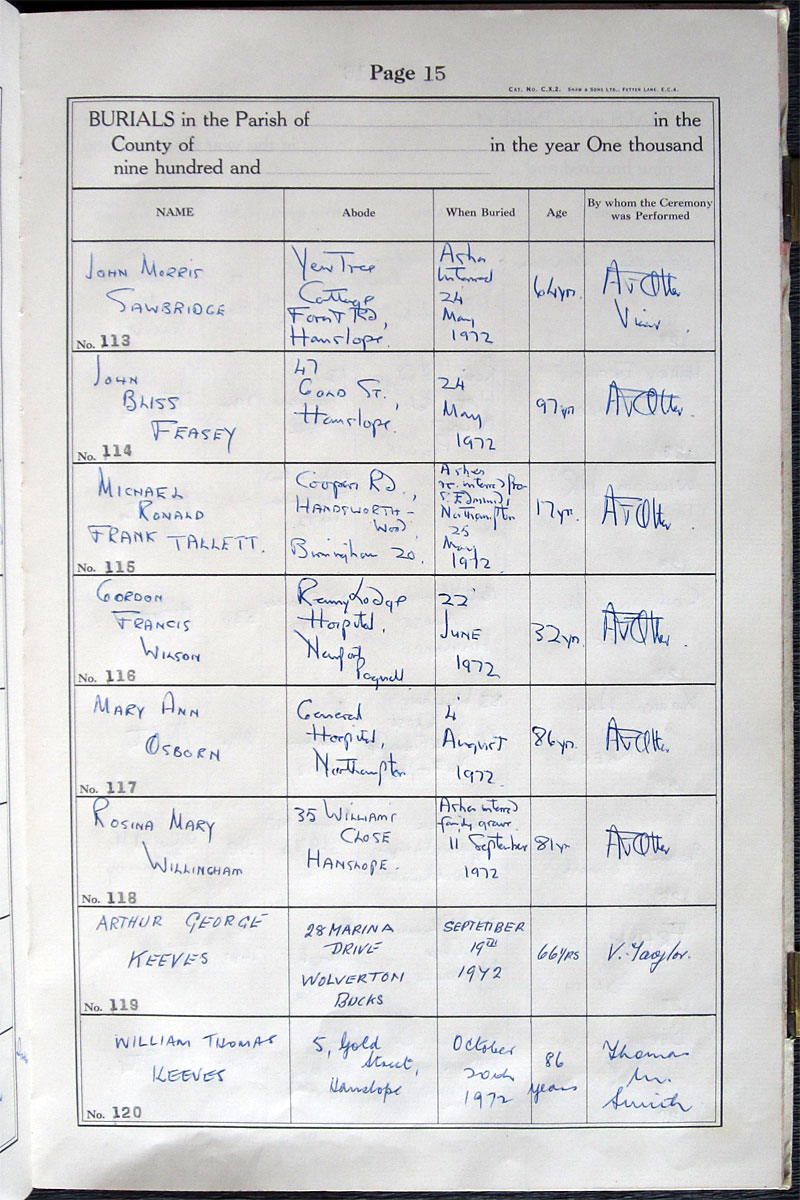 Page 15
CAT. NO. C.X.2. SHAW & SONS LTD., FETTER LANE, E.C.4.
BURIALS in the Parish of in the
County of in the year One thousand
nine hundred and
NAME Abode When Buried Age By whom the Ceremony was Performed
JOHN MORRIS
SAWBRIDGE
No. 113
Yew Tree
Cottage
Forest Rd,
Hanslope.
Ashes
Interred
24
May
1972
64 yr.
Vicar
JOHN
BLISS
FEASEY
No. 114
47
Gold St.,
Hanslope.
24
May
1972
97 yr
MICHAEL
RONALD
FRANK TALLETT.
No. 115
Cooper Rd.,
HANDSWORTH-
WOOD
Birmingham 20.
Ashes
re. interred from
S. Edmund,
Northampton
25
May
1972
17 yr.
GORDON
FRANCIS
WILSON
No. 116
Renny Lodge
Hospital,
Newport
Pagnell
22
JUNE
1972
32 yr.
MARY ANN
OSBORN
No. 117
General
Hospital,
Northampton
4
August
1972
86 yr.
ROSINA MARY
WILLINGHAM
No. 118
35 WILLIAMS
CLOSE
HANSLOPE.
Ashes interred
family grave.
11 September
1972
81 yr
ARTHUR GEORGE
KEEVES
No. 119
28 MARINA
DRIVE
WOLVERTON
BUCKS
SEPTEMBER
19TH
1972
66 YRS
V. Taylor.
WILLIAM THOMAS
KEEVES
No. 120
5, Gold
Street,
Hanslope
October
20th
1972
86
years
Thomas
W.
Smith